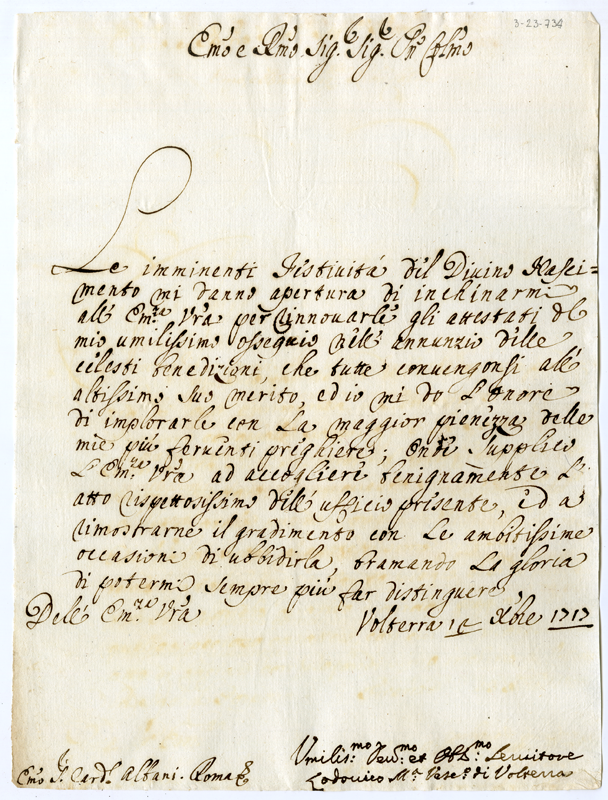 3-23-734
Emo e Rmo Sig.r Sig.r Pne Colmo
Le imminenti Festività del Divino Nasci=
mento mi danno apertura di inchinarmi
all' Em.za Vrã per rinnovarle gli attestati del
mio umilissimo ossequio nell' annunzio delle
celesti benedizioni, che tutte convengonsi all'
altissimo suo merito, ed io mi do l'onore
di implorarle con la maggior pienezza delle
mie più ferventi preghiere; onde supplico
l'Em.za Vrã ad accogliere benignam̃ente l'
atto rispettosissimo dell' ufficio presente, ed a
rimostrarne il gradimento con le ambitissime
occasioni di ubbidirla, bramando la gloria
di potermi sempre più far distinguere
Dell' Em.za Vrã
Volterra Xbre 1717
Emo S. Card.l Albani. Roma
Umilis.mo Dev.mo et Obb.mo Servitore
Lodovico M.a Vesc.o di Volterra